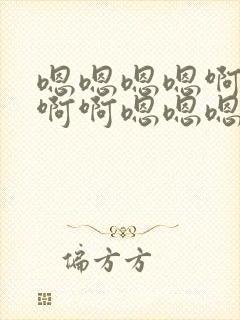 嗯嗯嗯嗯啊
啊啊嗯嗯嗯
偏方方